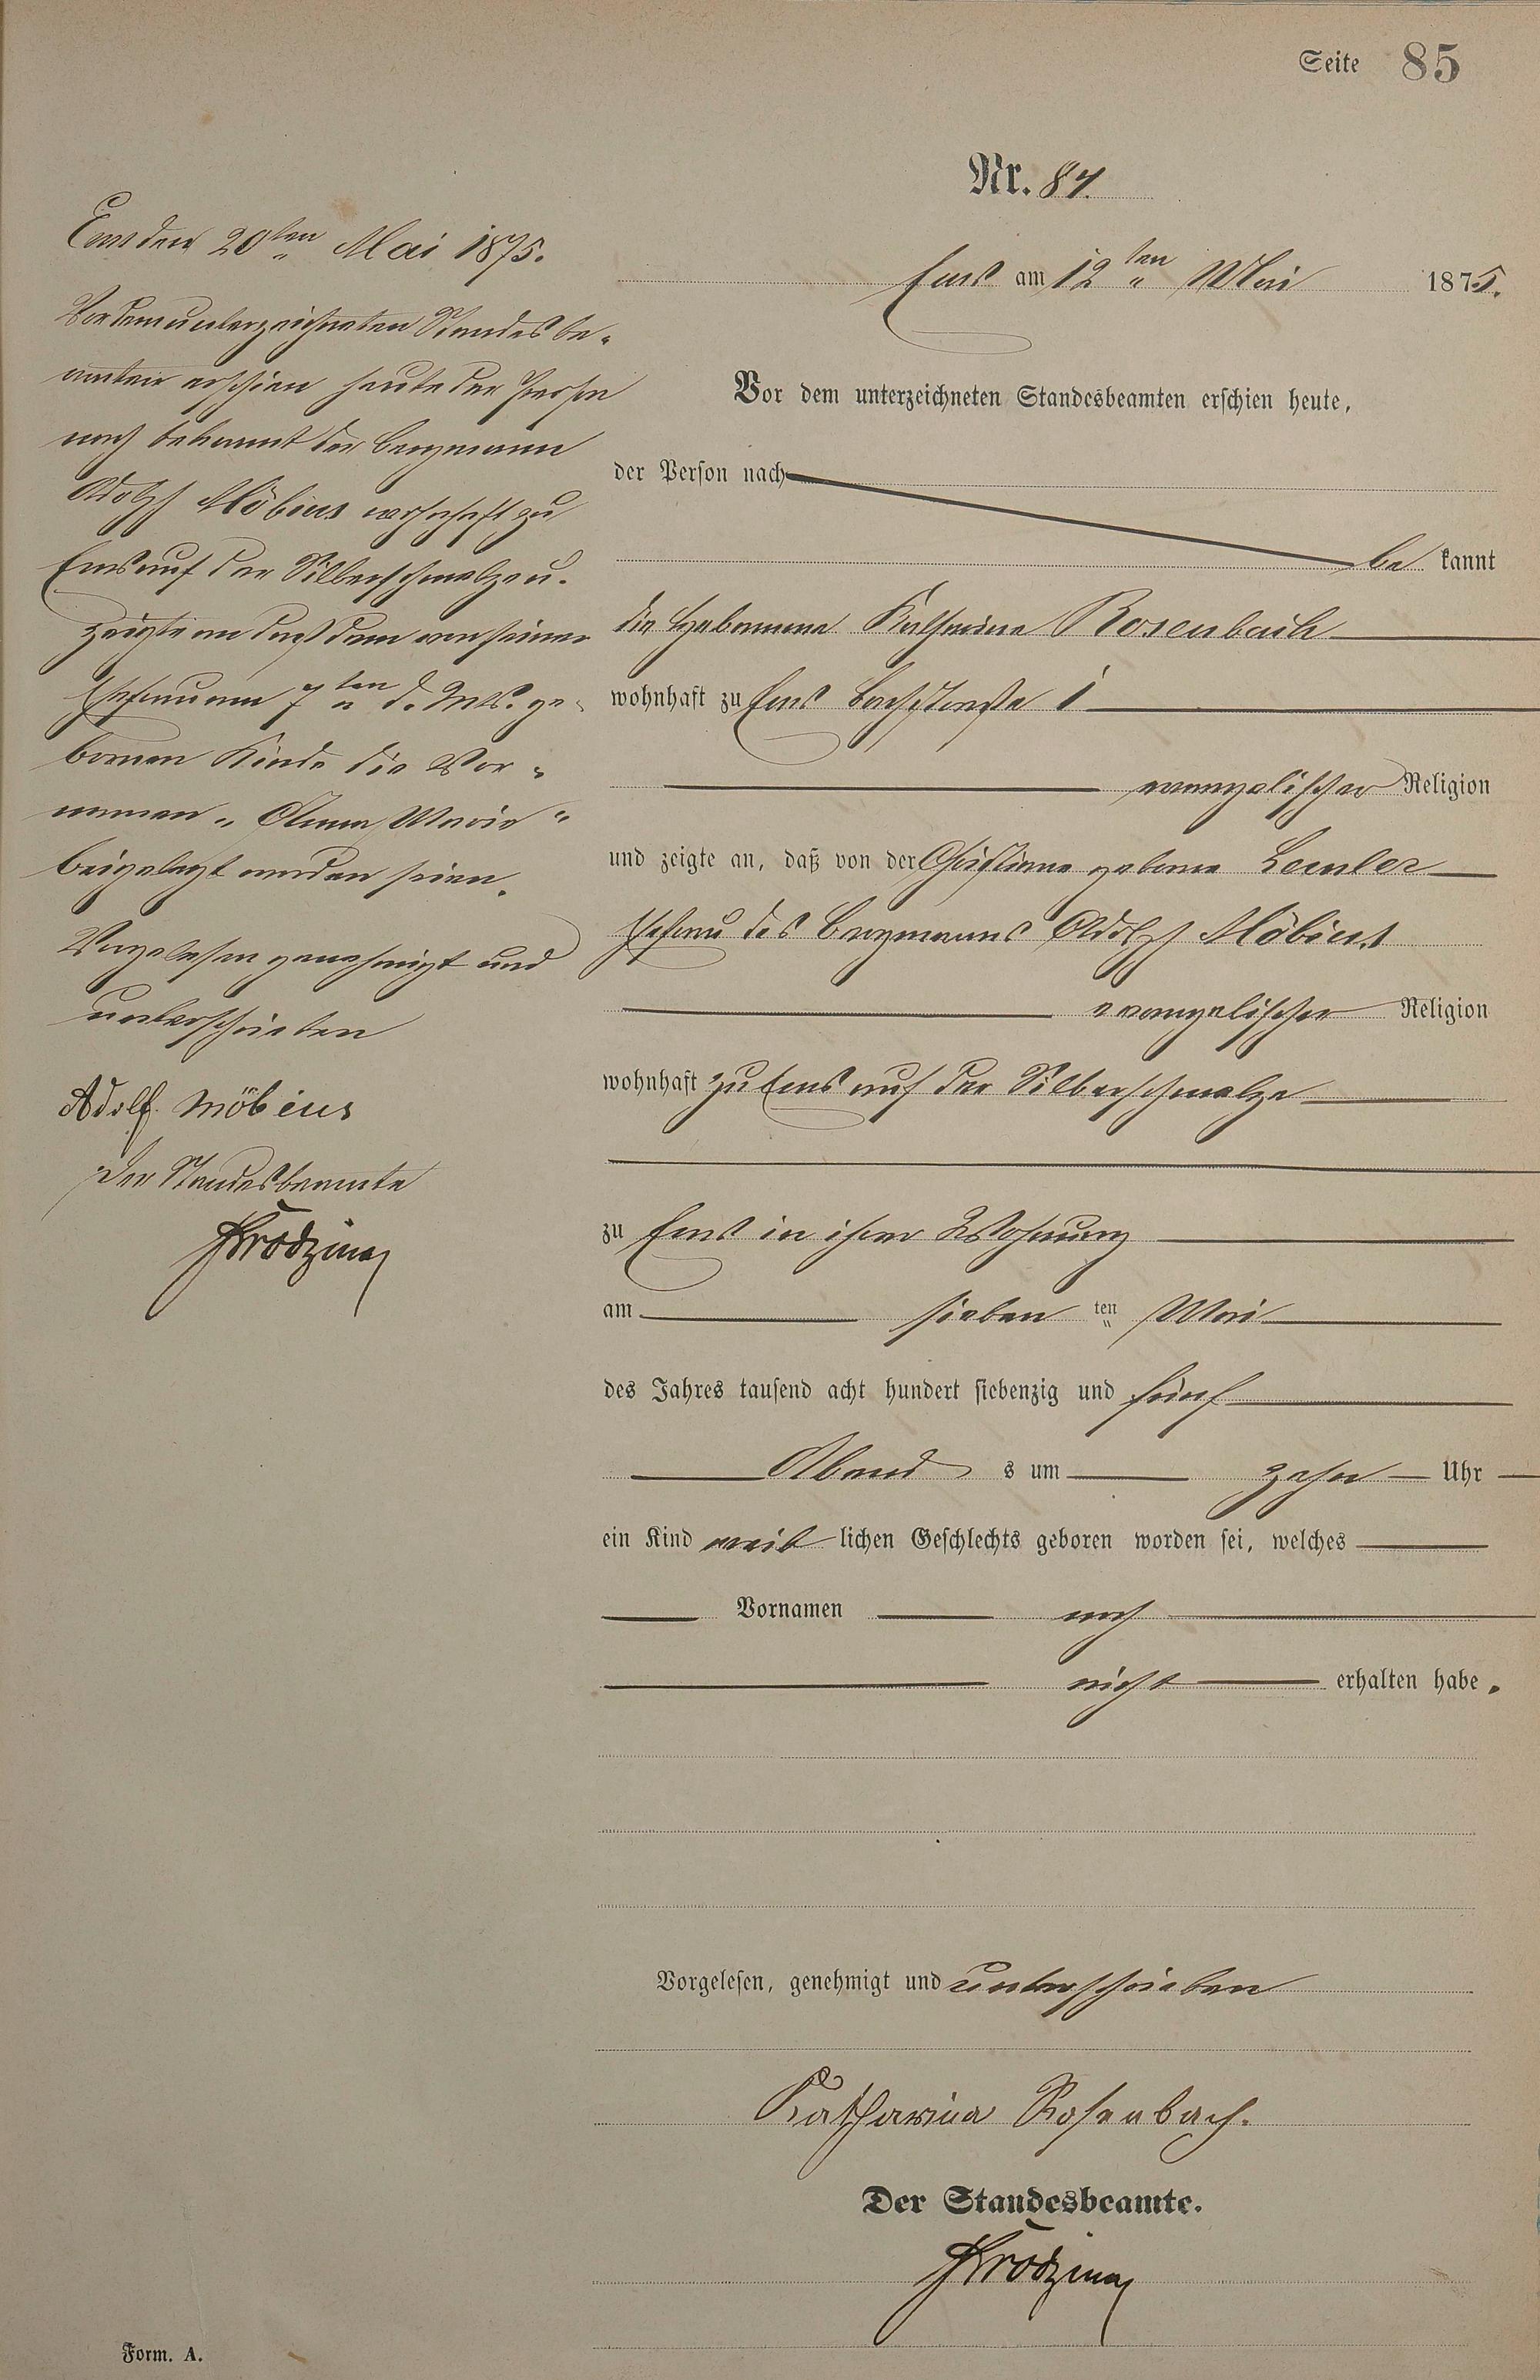 Seite 85
Nr. 84.
Ems am 12ten Mai 1875.
Vor dem unterzeichneten Standesbeamten erschien heute,
der Person nach
be kannt
die Hebamme Katharina Rosenbach
wohnhaft zu Ems Bachstraße 1
evangelischer Religion
und zeigte an, daß von der Christiane geborne Lemler
Ehefrau des Bergmanns Adolph Möbius
evangelischer Religion
wohnhaft zu Ems auf der Silberschmelze
zu Ems in ihrer Wohnung
am sieben ten Mai
des Jahres tausend acht hundert siebenzig und fünf
Abend s um zehn Uhr
ein Kind weib lichen Geschlechts geboren worden sei, welches
Vornamen noch
nicht erhalten habe.
Vorgelesen, genehmigt und unterschrieben
Katharina Rosenbach.
Der Standesbeamte.
Ems den 20ten Mai 1875.
Vor dem unterzeichneten Standesbe-
amten erschien heute der Person
nach bekannt der Bergmann
Adolph Möbius wohnhaft zu
Ems auf der Silberschmelze u.
zeigte an daß dem von seiner
Ehefrau am 7ten d. Mts. ge-
bornen Kinde die Vor-
namen „Anna Maria"
beigelegt worden seien.
Vorgelesen genehmigt und
unterschrieben
Adolf Möbius
Der Standesbeamte
Form. A.